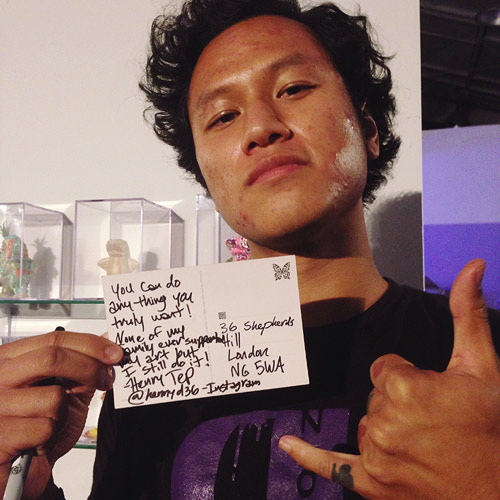 You can do
any-thing you
truly want!
None of my
family ever supported
my art but
I still do it!
Henry Tep
-Instagram
36 Shepherds
Hill
London
N6 5WA